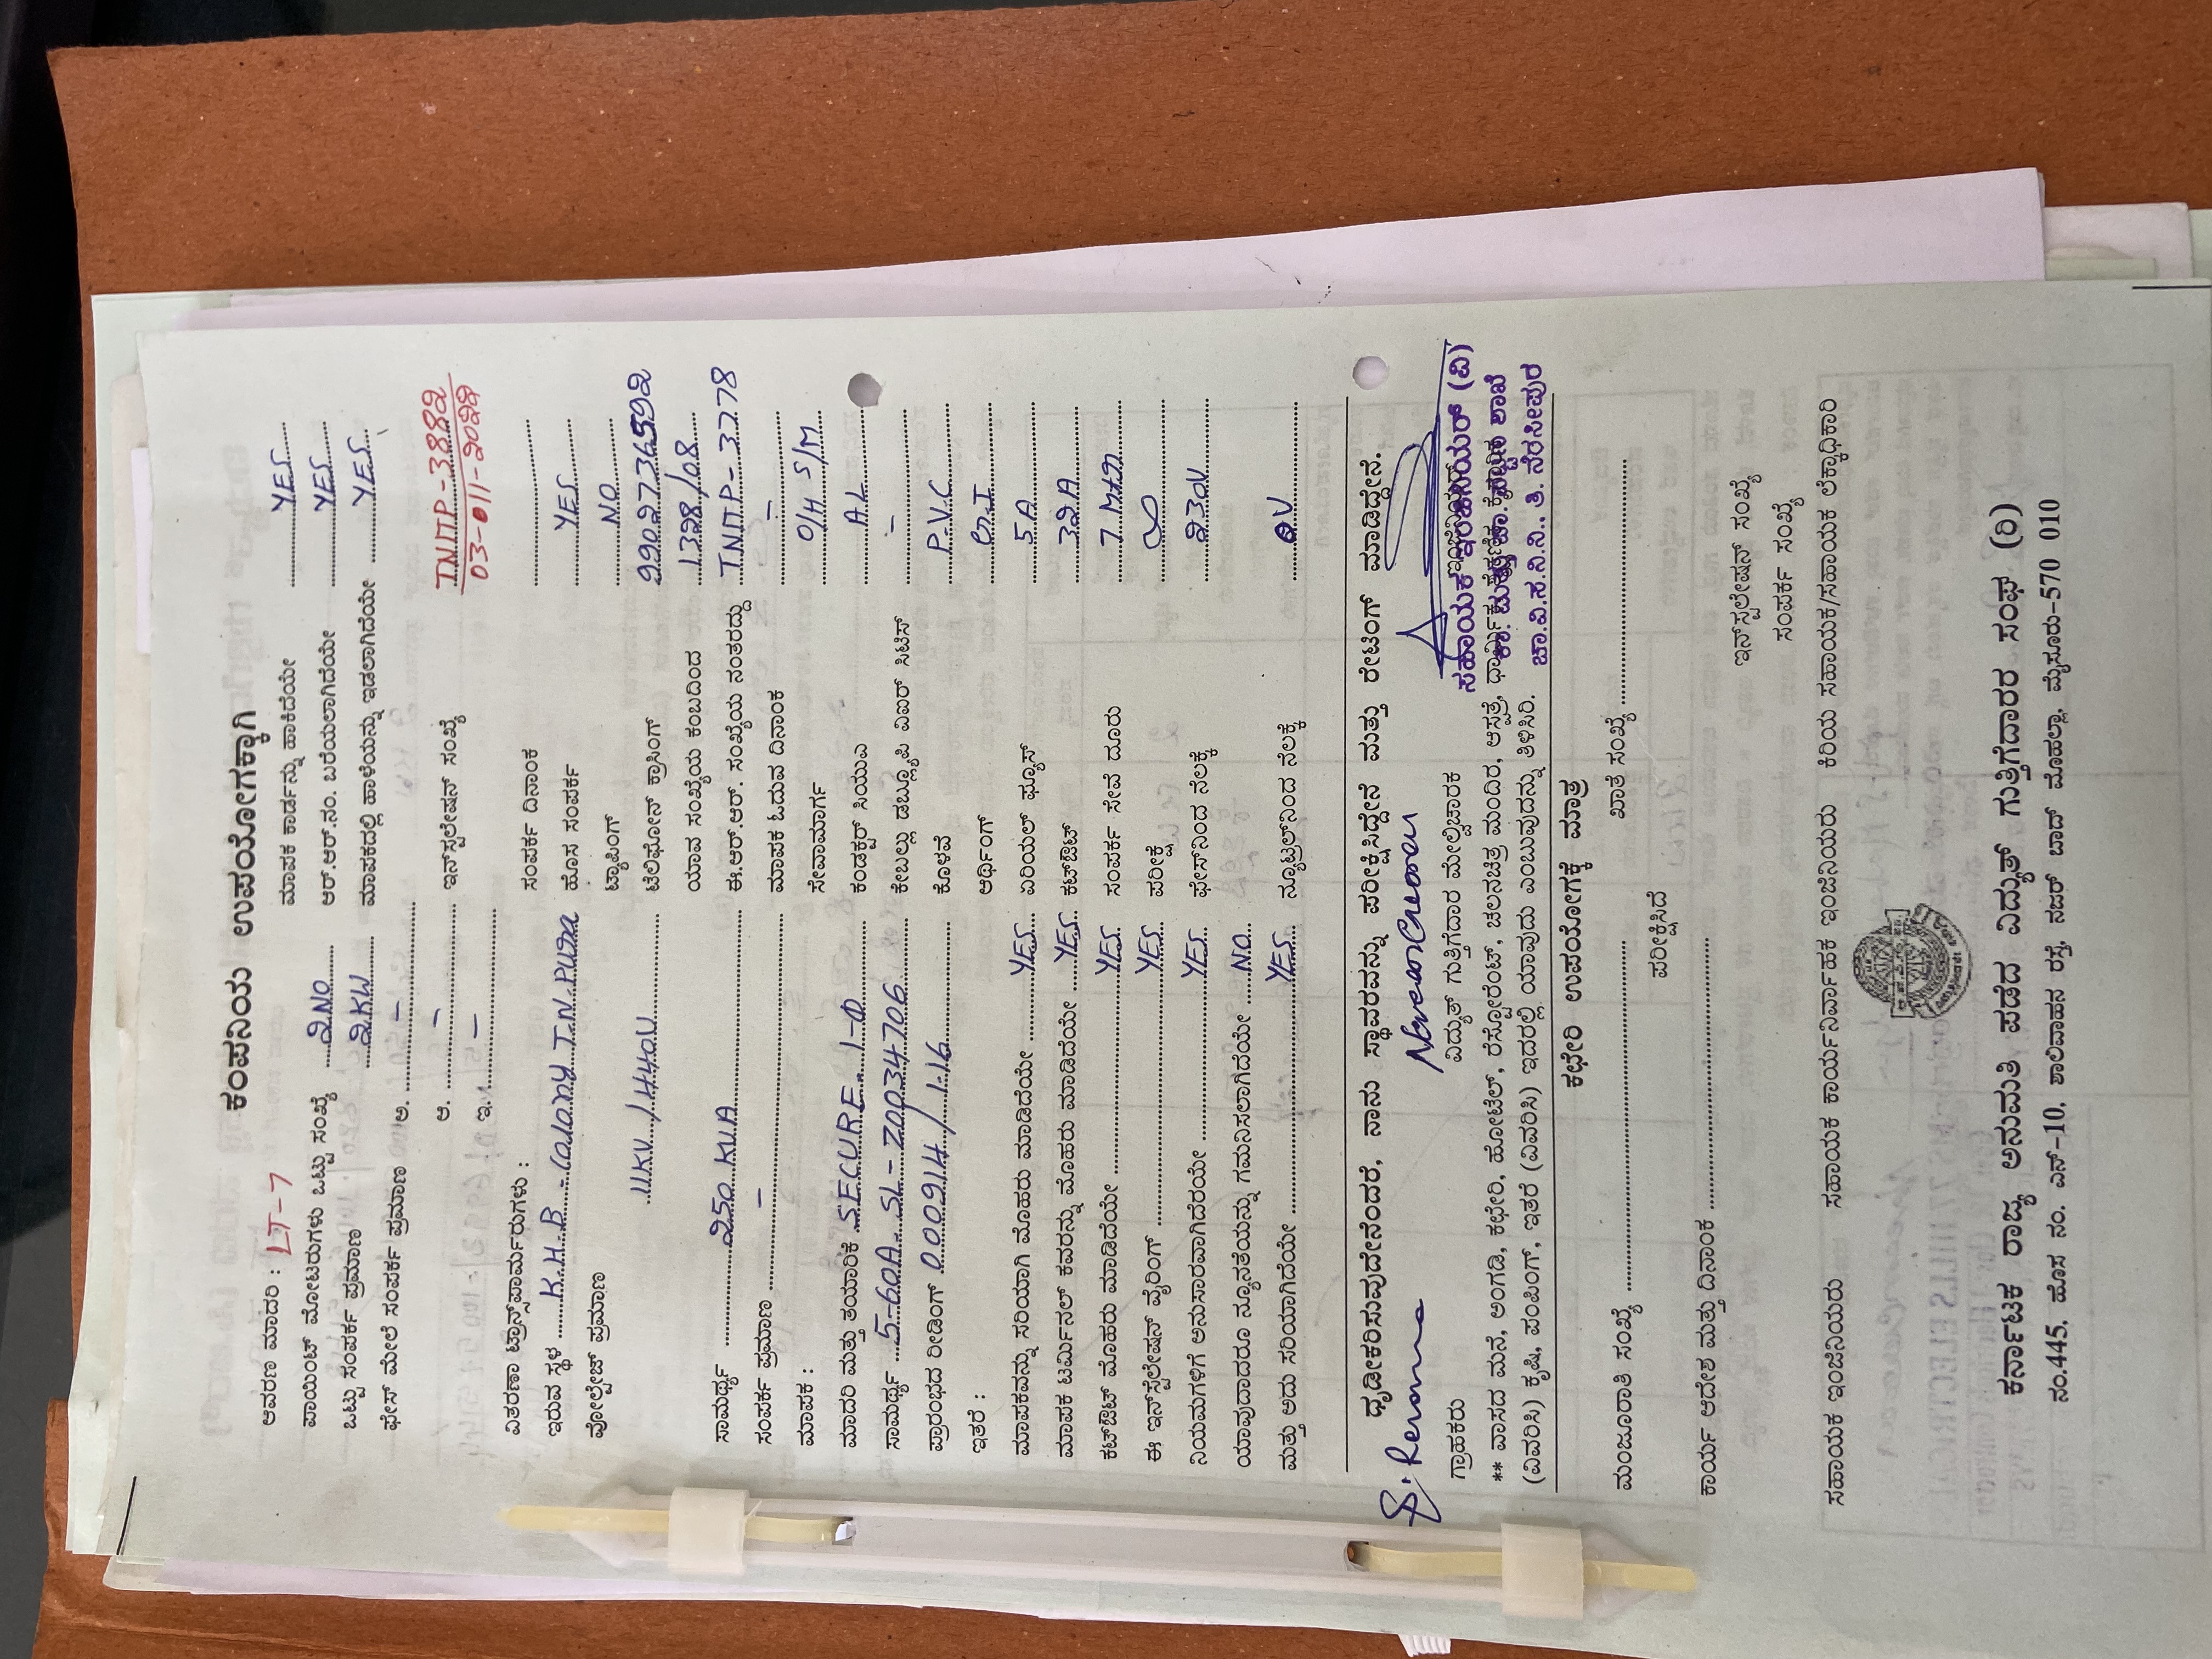 ಕಂಪನಿಯ ಉಪಯೋಗಕ್ಕಾಗಿ
ಆವರಣ ಮಾದರಿ : LT-7
ಮಾಪಕ ಕಾರ್ಡನ್ನು ಹಾಕಿದೆಯೇ YES
ಪಾಯಿಂಟ್ ಮೋಟರುಗಳು ಒಟ್ಟು ಸಂಖ್ಯೆ 2NO
ಆರ್.ಆರ್.ನಂ. ಬರೆಯಲಾಗಿದೆಯೇ YES
ಒಟ್ಟು ಸಂಪರ್ಕ ಪ್ರಮಾಣ 2KW
ಮಾಪಕದಲ್ಲಿ ಹಾಳೆಯನ್ನು ಇಡಲಾಗಿದೆಯೇ YES
ಫೇಸ್ ಮೇಲೆ ಸಂಪರ್ಕ ಪ್ರಮಾಣ ಅ. –
ಆ. –
ಇನ್‌ಸ್ಟಲೇಷನ್ ಸಂಖ್ಯೆ TNMP-3882
ಇ. –
03-011-2022
ವಿತರಣಾ ಟ್ರಾನ್ಸ್‌ಫಾರ್ಮರುಗಳು :
ಸಂಪರ್ಕ ದಿನಾಂಕ
ಇರುವ ಸ್ಥಳ K.H.B - COLONY T.N.PURA
ಹೊಸ ಸಂಪರ್ಕ YES
ವೋಲ್ಟೇಜ್ ಪ್ರಮಾಣ
ಟ್ಯಾಪಿಂಗ್ NO
11KV / 440V
ಟೆಲಿಫೋನ್ ಕ್ರಾಸಿಂಗ್ 2202736592
ಯಾವ ಸಂಖ್ಯೆಯ ಕಂಬದಿಂದ 1328/08
ಸಾಮರ್ಥ್ಯ 250 KVA
ಈ.ಆರ್.ಆರ್. ಸಂಖ್ಯೆಯ ನಂತರದ್ದು TNMP-3778
ಸಂಪರ್ಕ ಪ್ರಮಾಣ –
ಮಾಪಕ ಓದುವ ದಿನಾಂಕ –
ಮಾಪಕ :
ಸೇವಾಮಾರ್ಗ O/H S/M
ಮಾದರಿ ಮತ್ತು ತಯಾರಿಕೆ SECURE 1-Φ
ಕಂಡಕ್ಟರ್ ಸಿಯುಎ AL
ಸಾಮರ್ಥ್ಯ 5-60A SL - Z0034706
ಕೇಬಲ್ಲು ಡಬ್ಲ್ಯೂಪಿ ವಿಐಆರ್ ಸಿಟಿಸ್ –
ಪ್ರಾರಂಭದ ರೀಡಿಂಗ್ 000914 / 1.16
ಕೊಳವೆ P.V.C
ಇತರೆ :
ಅರ್ಥಿಂಗ್
ಮಾಪಕವನ್ನು ಸರಿಯಾಗಿ ಮೊಹರು ಮಾಡಿದೆಯೇ YES
ಏರಿಯಲ್ ಫ್ಯೂಸ್ 5A
ಮಾಪಕ ಟರ್ಮಿನಲ್ ಕವರನ್ನು ಮೊಹರು ಮಾಡಿದೆಯೇ YES
ಕಟ್‌ಔಟ್ 32A
ಕಟ್‌ಔಟ್ ಮೊಹರು ಮಾಡಿದೆಯೇ YES
ಸಂಪರ್ಕ ಸೇವೆ ದೂರು
ಈ ಇನ್‌ಸ್ಟೆಲೇಷನ್ ವೈರಿಂಗ್ YES
ಪರೀಕ್ಷೆ ∞
ನಿಯಮಗಳಿಗೆ ಅನುಸಾರವಾಗಿದೆಯೇ YES
ಫೇಸ್‌ನಿಂದ ನೆಲಕ್ಕೆ 230V
ಯಾವುದಾದರೂ ನ್ಯೂನತೆಯನ್ನು ಗಮನಿಸಲಾಗಿದೆಯೇ NO
ಮತ್ತು ಅದು ಸರಿಯಾಗಿದೆಯೇ YES
ನ್ಯೂಟ್ರಲ್‌ನಿಂದ ನೆಲಕ್ಕೆ 0V
ಧೃಡೀಕರಿಸುವುದೇನೆಂದರೆ, ನಾನು ಸ್ಥಾವರವನ್ನು ಪರೀಕ್ಷಿಸಿದ್ದೇನೆ ಮತ್ತು ರೇಟಿಂಗ್ ಮಾಡಿದ್ದೇನೆ.
ಗ್ರಾಹಕರು
ವಿದ್ಯುತ್ ಗುತ್ತಿಗೆದಾರ ಮೇಲ್ವಿಚಾರಕ
ಸಹಾಯಕ ಇಂಜಿನಿಯರ್ (ವಿ)
ಚಾ.ವಿ.ಸ.ನಿ.ನಿ., ತಿ. ನರಸೀಪುರ
** ವಾಸದ ಮನೆ, ಅಂಗಡಿ, ಕಛೇರಿ, ಹೋಟೆಲ್, ರೆಸ್ಟೋರೆಂಟ್, ಚಲನಚಿತ್ರ ಮಂದಿರ, ಆಸ್ಪತ್ರೆ,
(ವಿವರಿಸಿ) ಕೃಷಿ, ಪಂಪಿಂಗ್, ಇತರೆ (ವಿವರಿಸಿ) ಇದರಲ್ಲಿ ಯಾವುದು ಎಂಬುವುದನ್ನು ತಿಳಿಸಿರಿ.
ಕಛೇರಿ ಉಪಯೋಗಕ್ಕೆ ಮಾತ್ರ
ಮಂಜೂರಾತಿ ಸಂಖ್ಯೆ
ಖಾತೆ ಸಂಖ್ಯೆ
ಪರೀಕ್ಷಿಸಿದೆ
ಕಾರ್ಯ ಆದೇಶ ಮತ್ತು ದಿನಾಂಕ
ಇನ್‌ಸ್ಟಲೇಷನ್ ಸಂಖ್ಯೆ
ಸಂಪರ್ಕ ಸಂಖ್ಯೆ
ಸಹಾಯಕ ಇಂಜಿನಿಯರು ಸಹಾಯಕ ಕಾರ್ಯನಿರ್ವಾಹಕ ಇಂಜಿನಿಯರು ಕಿರಿಯ ಸಹಾಯಕ/ಸಹಾಯಕ ಲೆಕ್ಕಾಧಿಕಾರಿ
ಕರ್ನಾಟಕ ರಾಜ್ಯ ಅನುಮತಿ ಪಡೆದ ವಿದ್ಯುತ್ ಗುತ್ತಿಗೆದಾರರ ಸಂಘ (ರಿ)
ನಂ.445, ಹೊಸ ನಂ. ಎನ್-10, ಶಾಲಿವಾಹನ ರಸ್ತೆ, ನಜರ್ ಬಾದ್ ಮೊಹಲ್ಲಾ, ಮೈಸೂರು-570 010